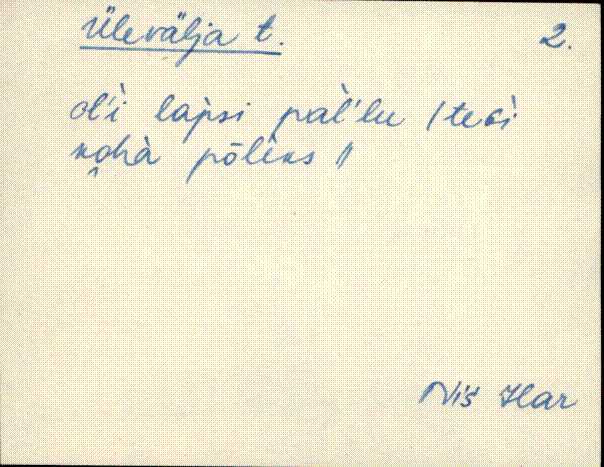 Ülevälja t. 2.
ol'i̇̀ làpsi pàl'lu / teGi̇̀
ko̭hà pōlèks //
Nis Har